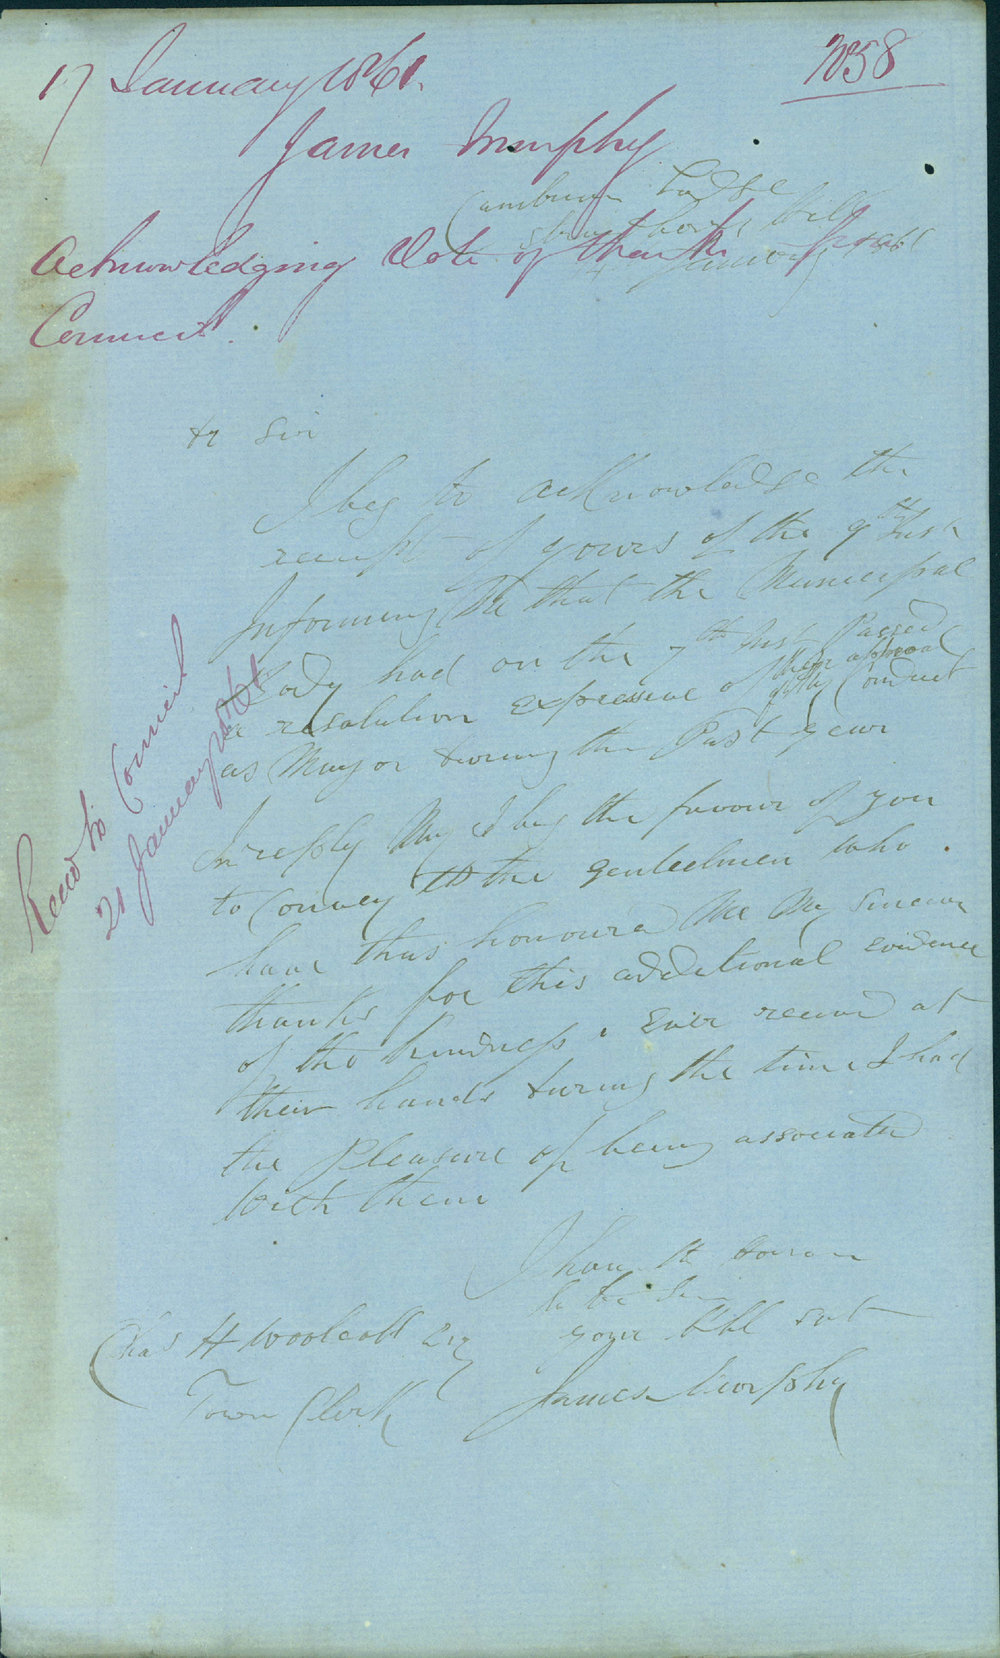 17 January 1861.
2058
James Murphy
Acknowledging Vote of thanks of
Council.
Lodge
Hill
January 1861
Dr Sir
I beg to acknowledge the
receipt of yours of the 9th Inst
Informing Me that the Municipal
Body had on the 7th Inst Passed
a resolution expressive of their approval
of My Conduct
as Mayor during the Past year
In reply May I beg the favour of you
to Convey to the gentlemen who
have thus honoured Me My Sincere
thanks for this additional evidence
of the kindness I Ever received at
their hands during the time I had
the Pleasure of being associated
With them
I have the honour
to be Sir
your obt svt
James Murphy
Chas H Woolcott Esq
Town Clerk
Recd to Council
21 January 1861